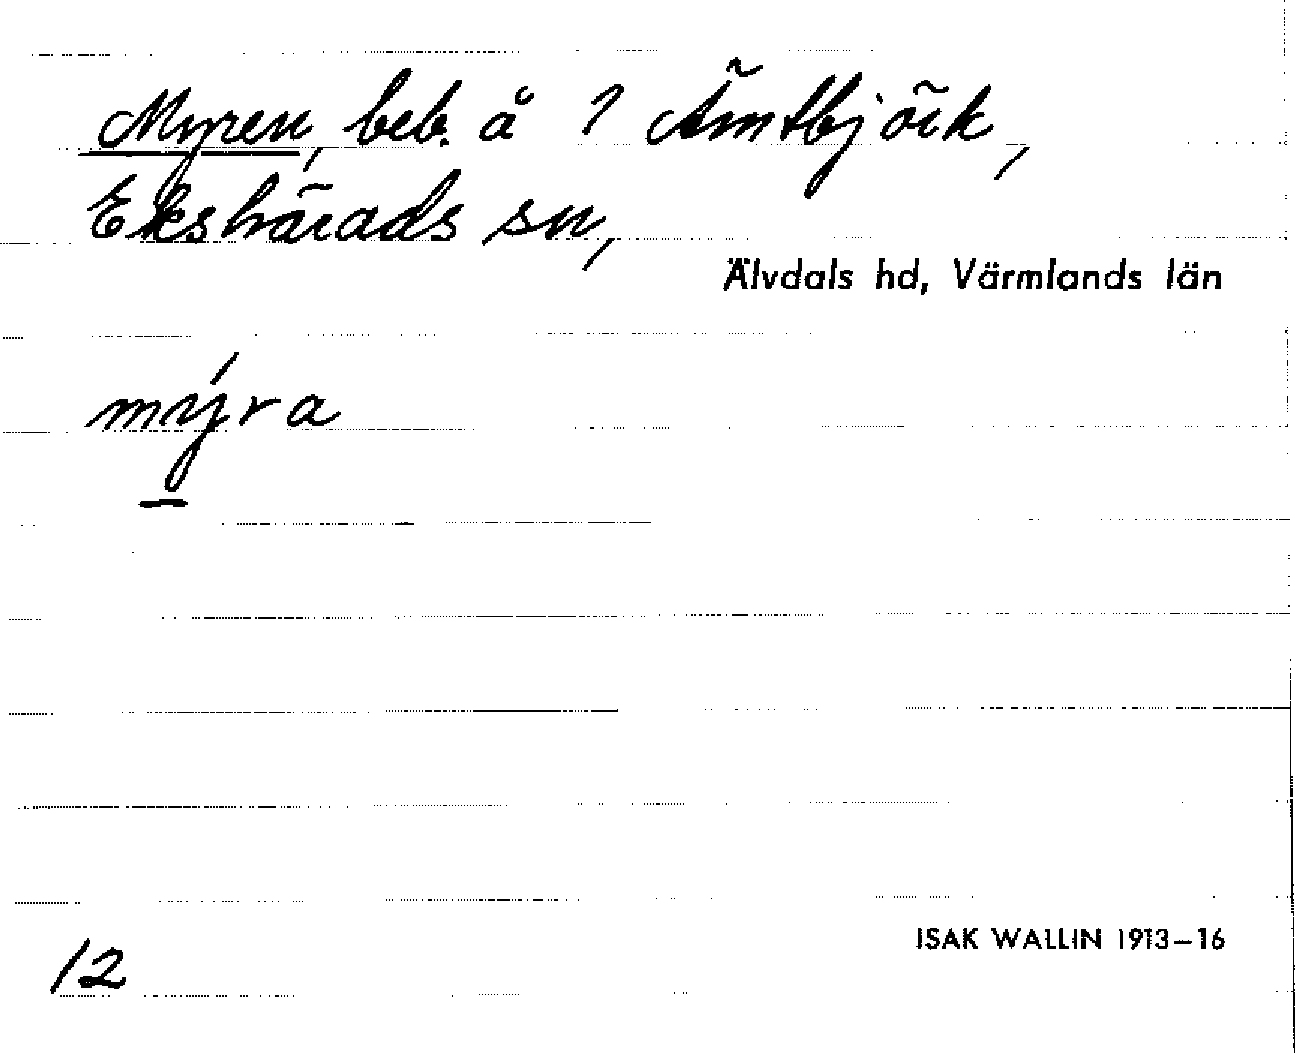 Myren, beb. å ? Ämtbjörk,
Ekshärads sn,
Älvdals hd, Värmlands län
mýra
12
ISAK WALLIN 1913–16